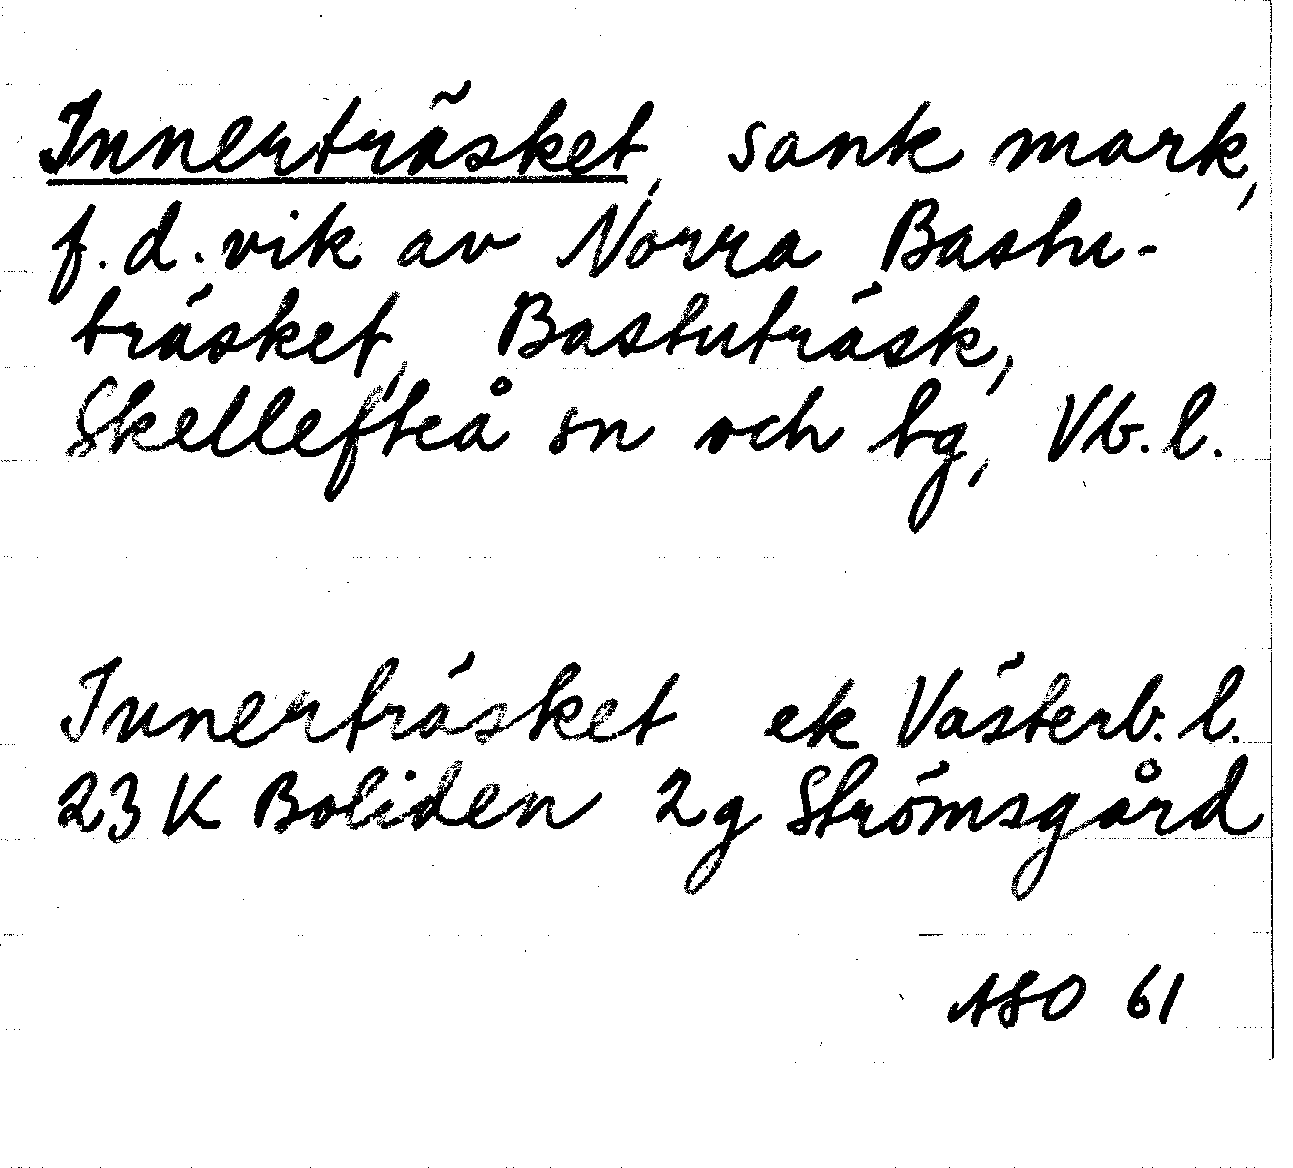 Innerträsket, sank mark,
f.d. vik av Norra Bastu-
träsket, Bastuträsk,
Skellefteå sn och tg, Vb.l.
Innerträsket ek Västerb. l.
23 K Boliden 2g Strömsgård
ASO 61